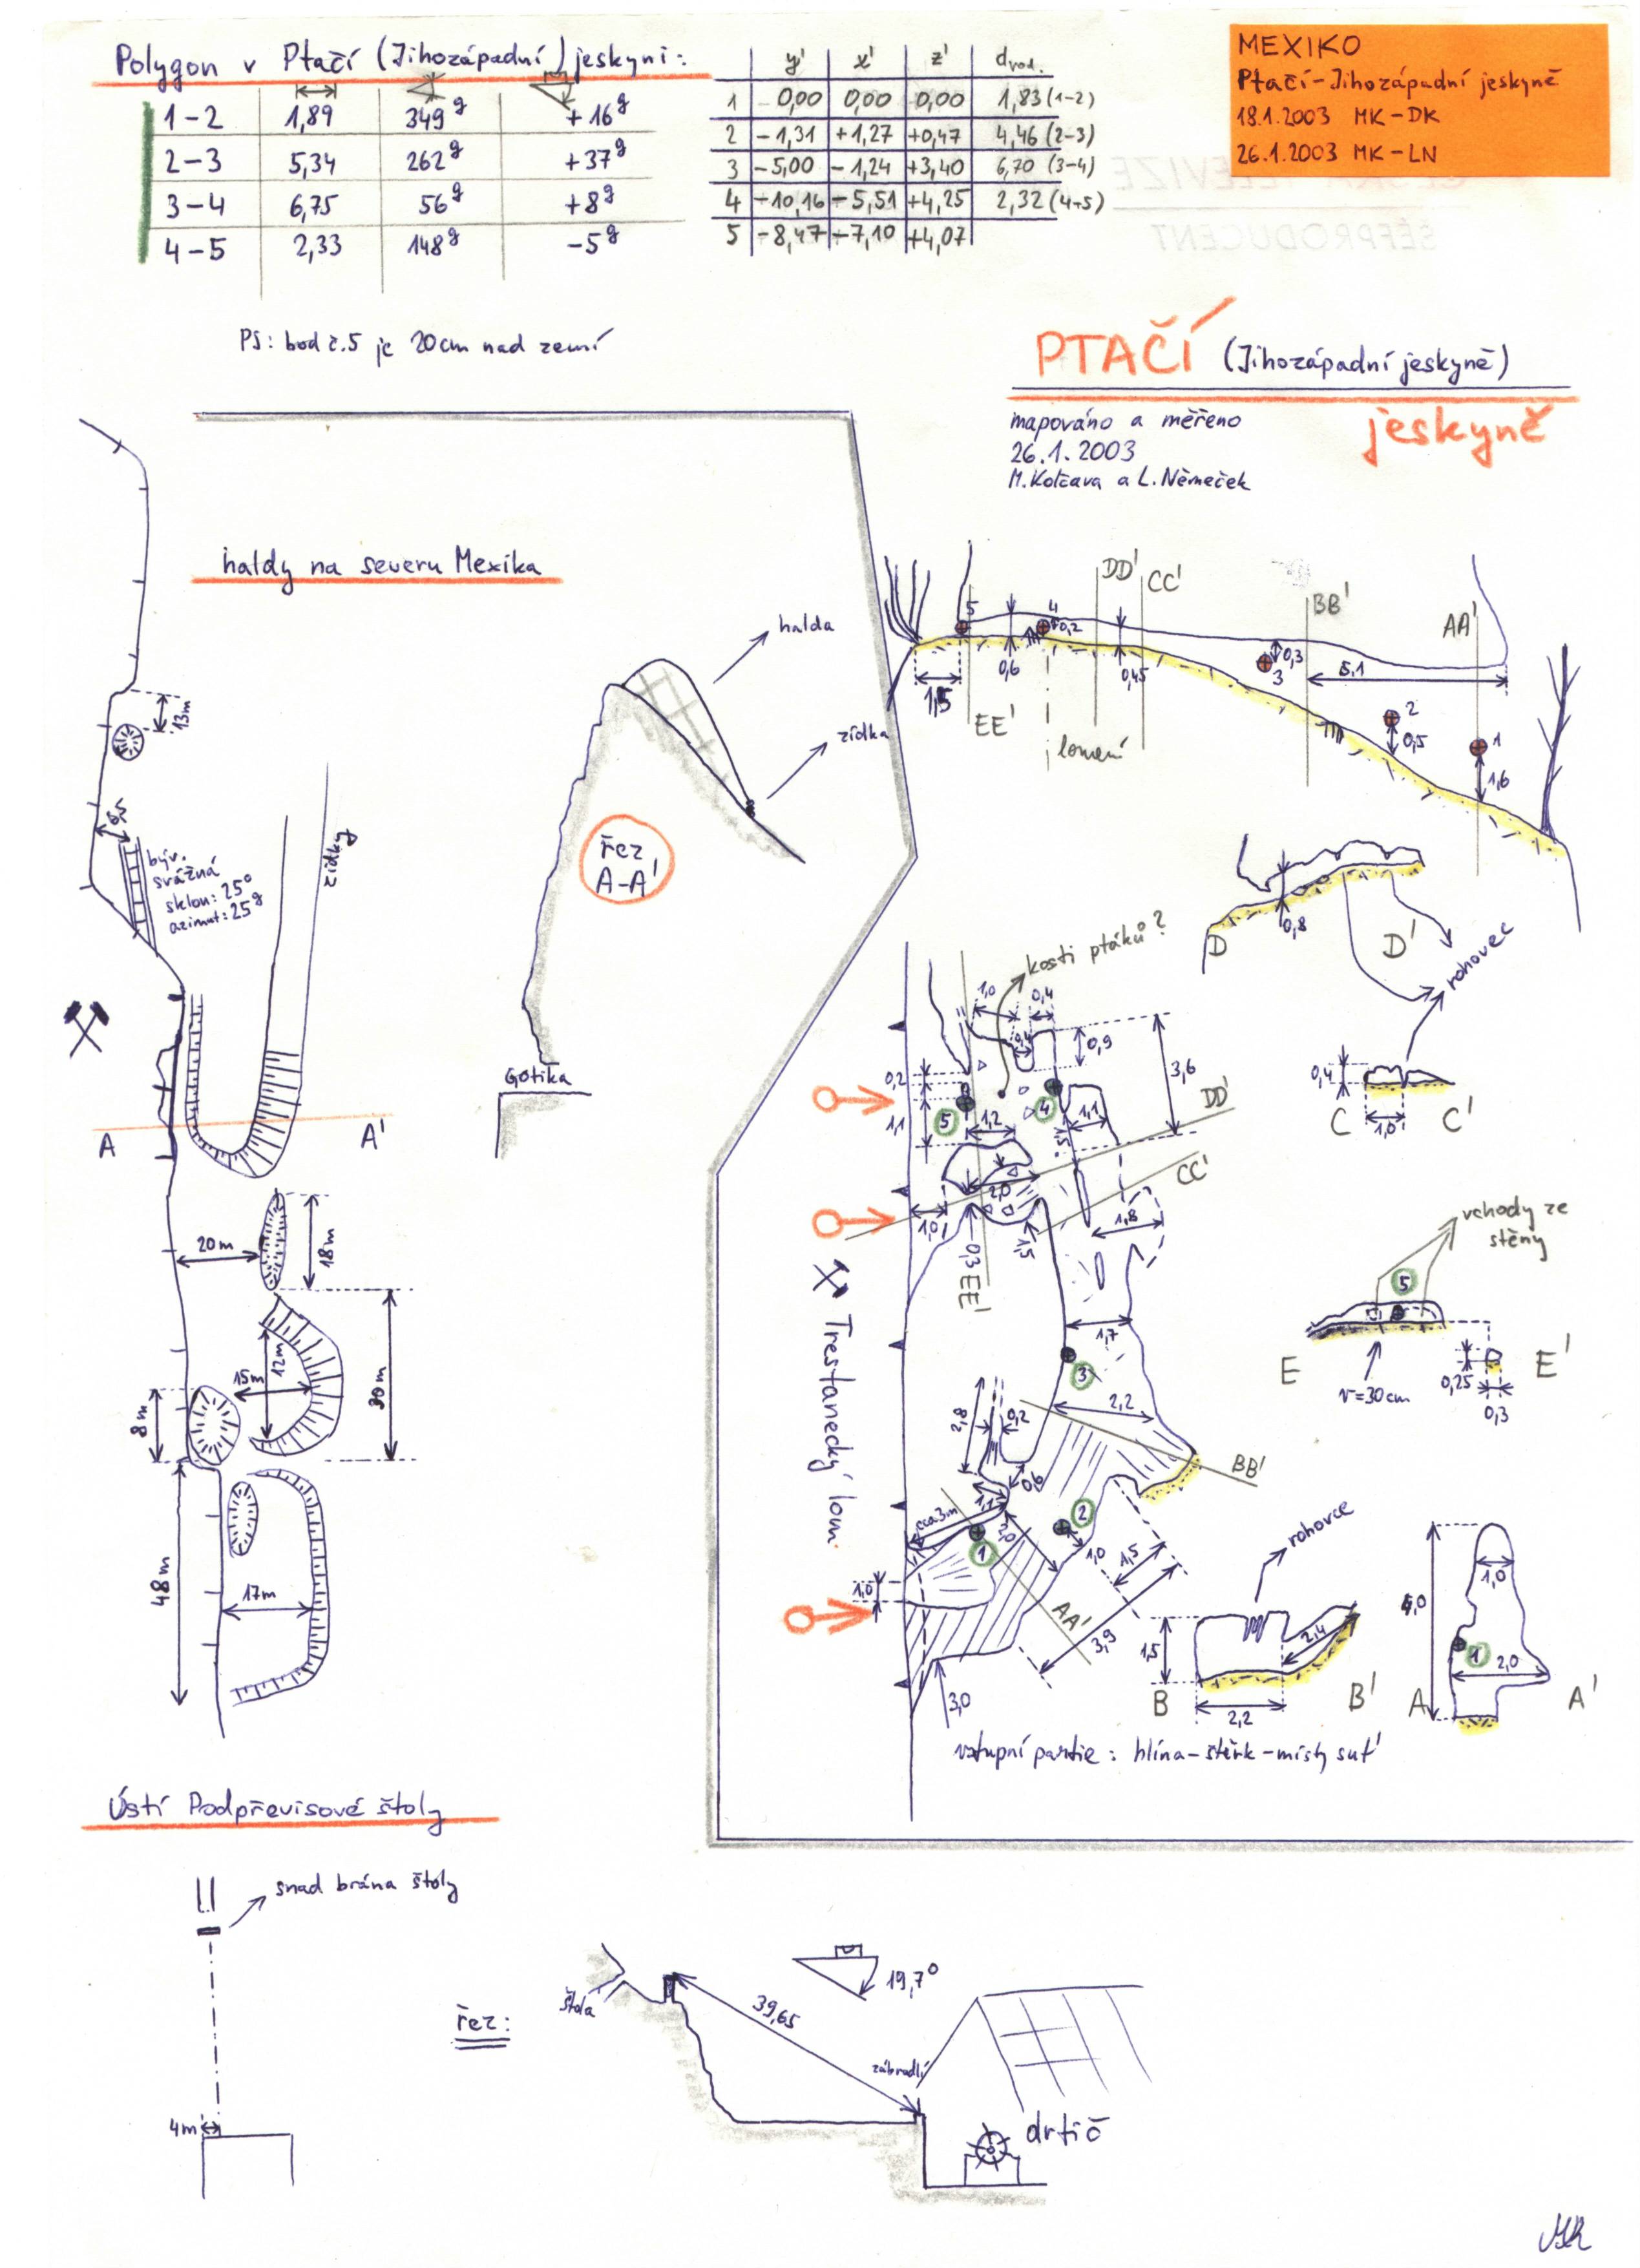 Polygon v Ptačí (Jihozápadní) jeskyni:
1-2 1,89 349g +16g
2-3 5,34 262g +37g
3-4 6,75 56g +8g
4-5 2,33 148g -5g
y' x' z' dvod.
1 0,00 0,00 0,00 1,83 (1-2)
2 -1,31 +1,27 +0,47 4,46 (2-3)
3 -5,00 -1,24 +3,40 6,70 (3-4)
4 -10,16 -5,51 +4,25 2,32 (4-5)
5 -8,47 -7,10 +4,07
MEXIKO
Ptačí-Jihozápadní jeskyně
18.1.2003 MK-DK
26.1.2003 MK-LN
ŠÉFPRODUCENT
PS: bod č.5 je 20cm nad zemí
PTAČÍ (Jihozápadní jeskyně)
jeskyně
mapováno a měřeno
26.1.2003
M. Kolčava a L. Němeček
haldy na severu Mexika
halda
zídka
řez
A-A'
Gotika
13m
8,5
býv.
svážná
sklon: 25°
azimut: 25g
zídky
A
A'
20m
18m
15m
12m
30m
8m
48m
17m
5
4
0,2
DD'
CC'
BB'
AA'
0,3
3
5,1
2
0,5
1
1,6
1,5
0,6
0,45
EE'
lomení
0,8
D
D'
rohovec
kosti ptáků?
1,0
0,4
0,4
0,9
3,6
0,2
1,1
5
1,2
4
1,1
1,5
DD'
CC'
2,0
1,0
0,3
1,5
1,8
EE'
Trestanecký lom
1,7
3
2,2
2,8
0,2
0,6
BB'
1,1
cca 3m
1
2,0
2
1,0
1,5
3,9
AA'
1,0
3,0
0,4
C
1,0
C'
vchody ze
stěny
5
E
E'
v=30cm
0,25
0,3
rohovce
1,5
2,4
B
2,2
B'
4,0
1,0
1
2,0
A
A'
vstupní partie: hlína-štěrk-místy suť
Ústí Podpřevisové štoly
snad brána štoly
4m
řez:
štola
39,65
19,7°
zábradlí
drtič
MK